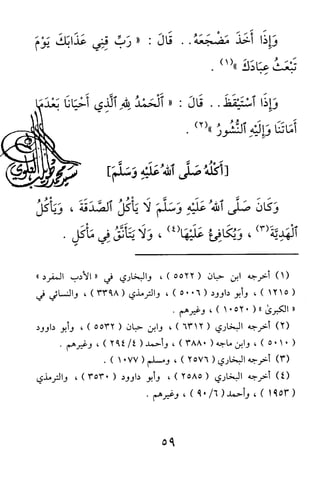 وَإِذَا أَخَذَ مَضْجَعَهُ.. قَالَ : « رَبِّ قِنِي عَذَابَكَ يَوْمَ
تَبْعَثُ عِبَادَكَ »(١) .
وَإِذَا ٱسْتَيْقَظَ.. قَالَ : « ٱلْحَمْدُ لِلهِ ٱلَّذِي أَحْيَانَا بَعْدَمَا
أَمَاتَنَا وَإِلَيْهِ ٱلنُّشُورُ »(٢) .
[أَكْلُهُ صَلَّى ٱللهُ عَلَيْهِ وَسَلَّمَ]
وَكَانَ صَلَّى ٱللهُ عَلَيْهِ وَسَلَّمَ لَا يَأْكُلُ ٱلصَّدَقَةَ ، وَيَأْكُلُ
ٱلْهَدِيَّةَ(٣) ، وَيُكَافِىءُ عَلَيْهَا(٤) ، وَلَا يَتَأَنَّقُ فِي مَأْكَلٍ .
(١) أخرجه ابن حبان ( ٥٥٢٢ ) ، والبخاري في « الأدب المفرد »
( ١٢١٥ ) ، وأبو داوود ( ٥٠٠٦ ) ، والترمذي ( ٣٣٩٨ ) ، والنسائي في
« الكبرىٰ » ( ١٠٥٢٠ ) ، وغيرهم .
(٢) أخرجه البخاري ( ٦٣١٢ ) ، وابن حبان ( ٥٥٣٢ ) ، وأبو داوود
( ٥٠١٠ ) ، وابن ماجه ( ٣٨٨٠ ) ، وأحمد ( ٢٩٤/٤ ) ، وغيرهم .
(٣) أخرجه البخاري ( ٢٥٧٦ ) ، ومسلم ( ١٠٧٧ ) .
(٤) أخرجه البخاري ( ٢٥٨٥ ) ، وأبو داوود ( ٣٥٣٠ ) ، والترمذي
( ١٩٥٣ ) ، وأحمد ( ٩٠/٦ ) ، وغيرهم .
٥٩